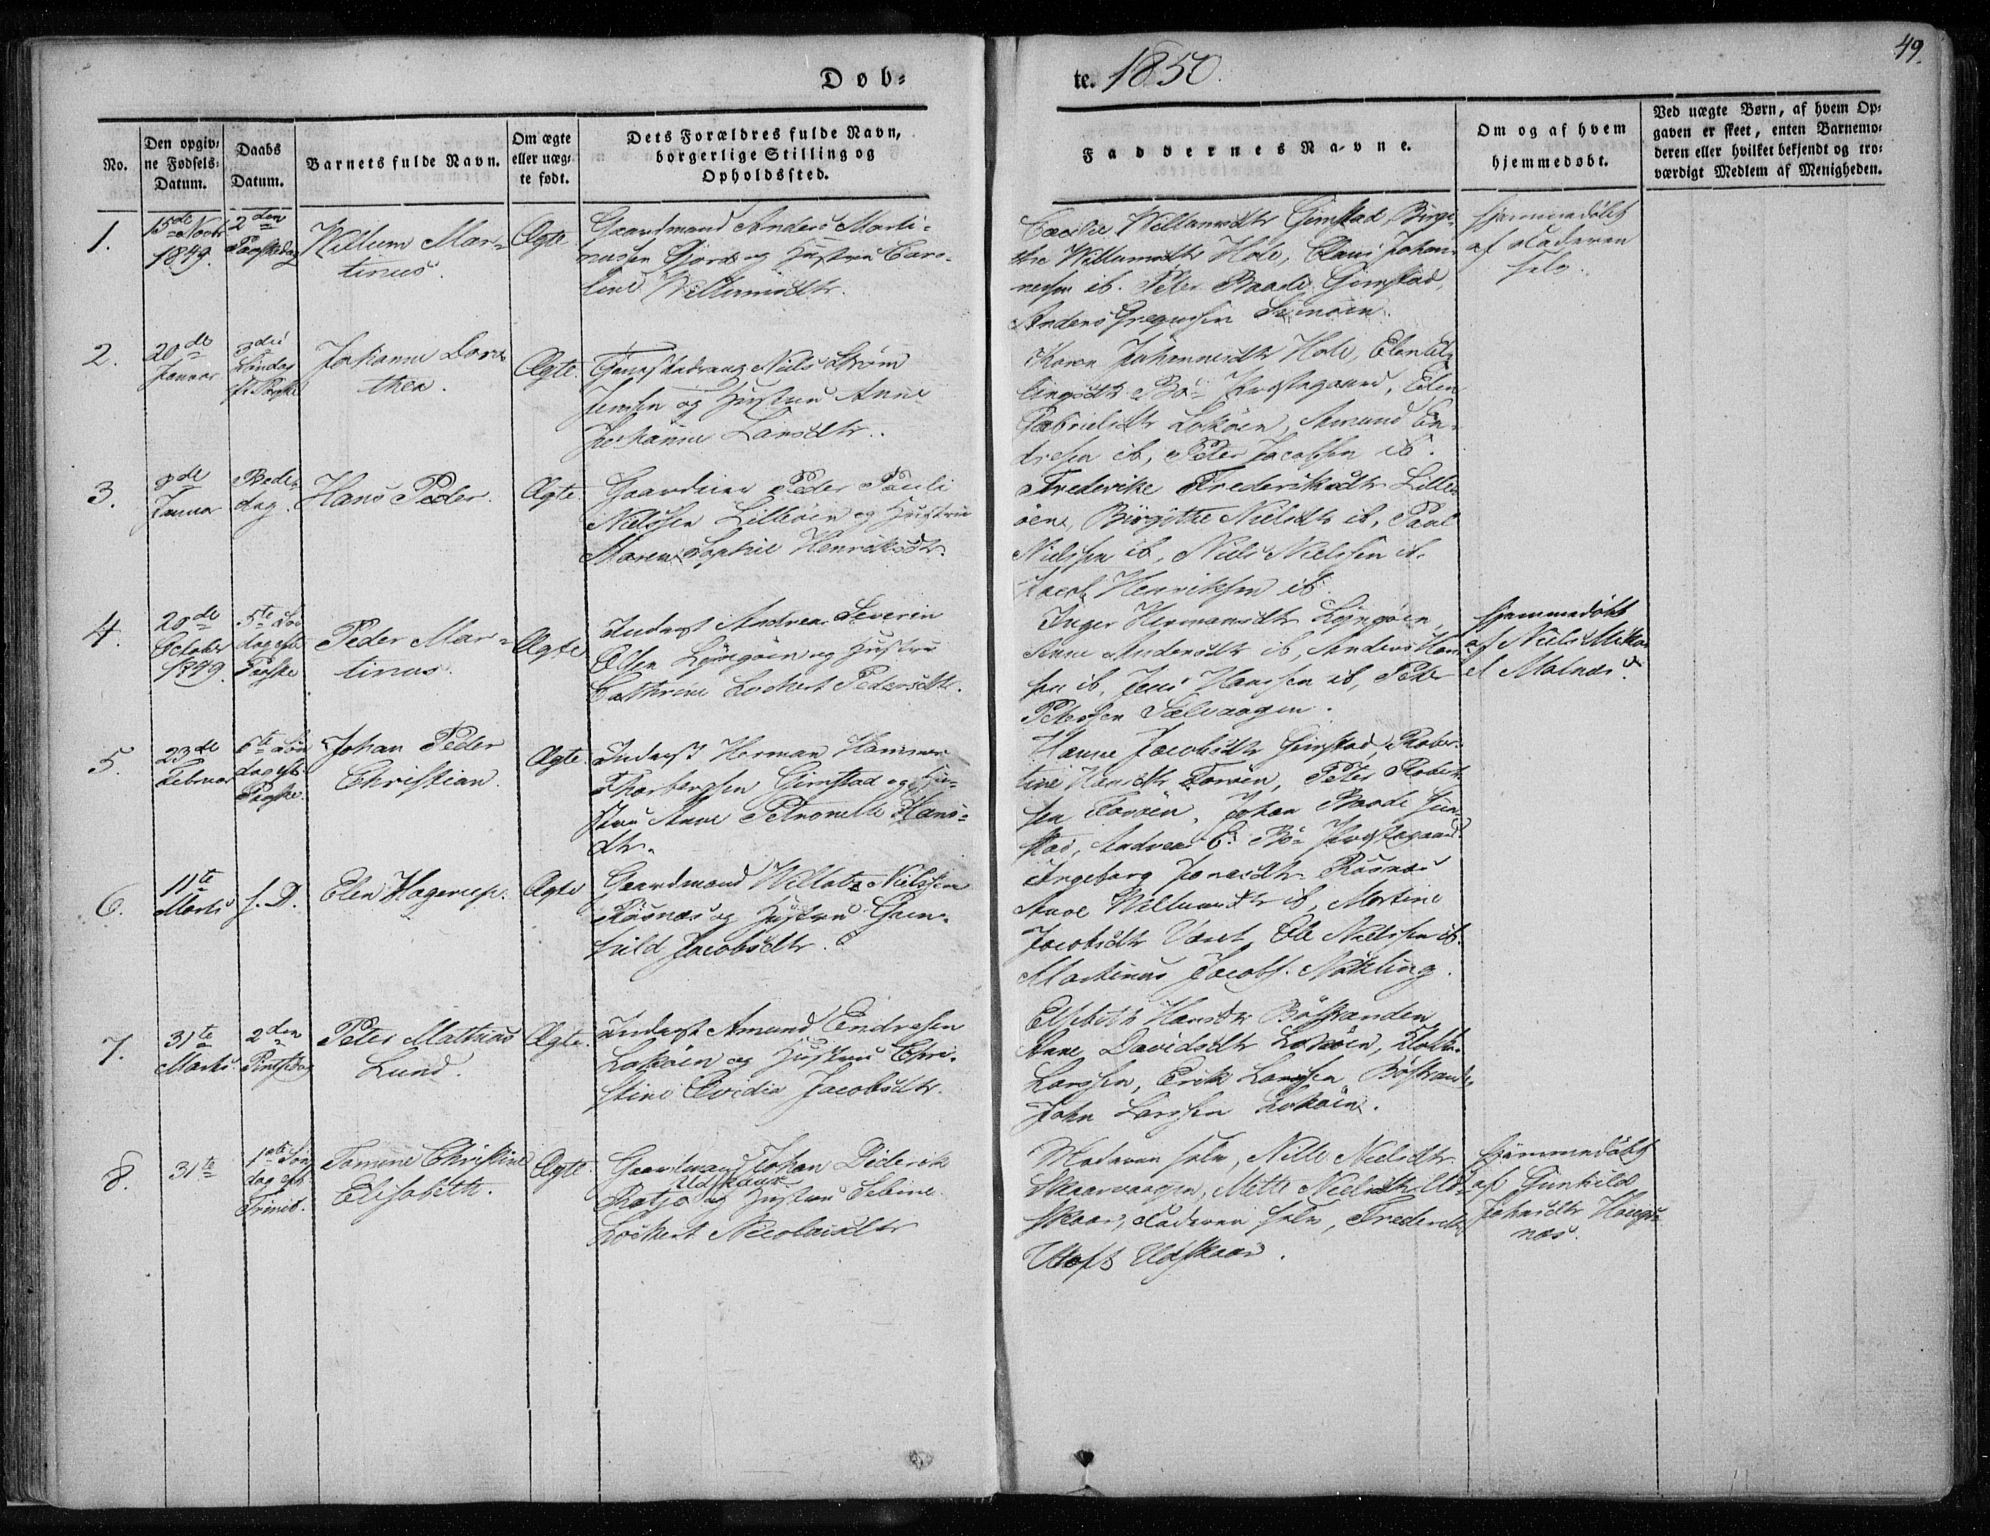 Døb-
te. 1850.
49.
No.
Den opgiv-
ne Fødsels-
Datum.
Daabs
Datum.
Barnets fulde Navn.
Om ægte
eller uæg-
te født.
Dets Forældres fulde Navn,
borgerlige Stilling og
Opholdssted.
Faddernes Navne.
Om og af hvem
hjemmedøbt.
Ved uægte Børn, af hvem Op-
gaven er skeet, enten Barnemo-
deren eller hvilket bekjendt og tro-
værdigt Medlem af Menigheden.
1.
15de Novbr
1849.
2den
Paaskedag
Willum Mar-
tinus.
Ægte
Gaardmand Anders Marti-
nusen Fjord og Hustru Caro-
line Willumsdtr.
Cæcilie Willumsdtr Gimstad, Birgi-
the Willumsdtr Hole, Claus Johan-
nesen ib. Peter Baade Gimstad,
Anders Gregussen
hjemmedøbt
af Faderen
selv.
2.
20de
Januar
3die
Søndag
ft. Paaske
Johanna Doro-
thea.
Ægte.
Niels Strøm
Jensen og Hustru Anne
Johanna Larsdtr.
Karen Johannesdtr Hole, Elen El-
lingsdtr Bø Præstegaard, Elen
Gabrielsdtr Lokøen, Amund En-
dresen ib, Peter Jacobsen ib.
3.
de
Januar
Bede-
dag.
Hans Peder.
Ægte.
Gaardeier Peder Pauli
Nielssen Lilleøen og Hustru
Maren Sophie Henriksdtr.
Frederike Frederiksdtr Lille-
øen, Birgithe Nielsdtr ib, Paul
Nielssen ib, Niels Nielssen ib.
Jacob Henriksen ib.
4.
20de
October
1849
5te Søn
dag eft.
Paaske
Peder Mar-
tinus.
Ægte
Inderst Andreas Severin
Olsen Lyngøen og Hustru
Cathrine Lockert Pedersdtr.
Inger Hermansdtr Lyngøen,
Anne Andersdtr ib, Anders Han-
sen ib, Jens Hanssen ib, Peter
Petersen Sælvaagen.
hjemmedøbt
af Niels Mik
el Malnæs.
5.
23de
Februar
6te Søn
dag eft.
Paaske.
Johan Peder
Christian.
Ægte.
Inderst Herman Hammer
Thorbergsen Gimstad og Hu-
stru Anne Petronelle Hans-
dtr.
Hanne Jacobsdtr Gimstad, Rober-
tine Hansdtr Forøen, Peter Robert-
sen Forøen, Johan Baade Gim-
stad, Andreas E. Bø Præstegaard.
6.
11te
Marts
f. D.
Elen Hagerup.
Ægte
Gaardmand Willats Nielssen
Røsnæs og Hustru Gun-
hild Jacobsdtr.
Ingeborg Jonasdtr Røsnæs
Anne Willumsdtr ib, Martine
Jacobsdtr Været, Ole Nielssen ib.
Martinus Jacobs. Nøkling.
7.
31te
Marts.
2den
Pintsedag
Peter Mathias
Lund.
Ægte.
Inderst Amund Endresen
Lokøen og Hustru Chri-
stine Ovidia Jacobsdtr.
Elsebeth Hansdtr Bøstranden
Anne Davidsdtr Lokøen,
Larssen, Erik Larssen Bøstrand.
John Larssen Lokøen.
8.
31te
1ste Søn
dag eft.
Trinit.
Tomine Christine
Elisabeth.
Ægte.
Gaardmand Johan Diderik
Udskaar
Ratje og Hustru Sebine
Lockert Nicolaisdtr
Moderen selv, Nille Nielsdtr
Skaarvaagen, Mette Nielsdtr Ud-
skaar, Faderen selv, Frederik
Toft Udskaar.
hjemmedøbt
af Gunhild
Johnsdtr Haugs-
næs.